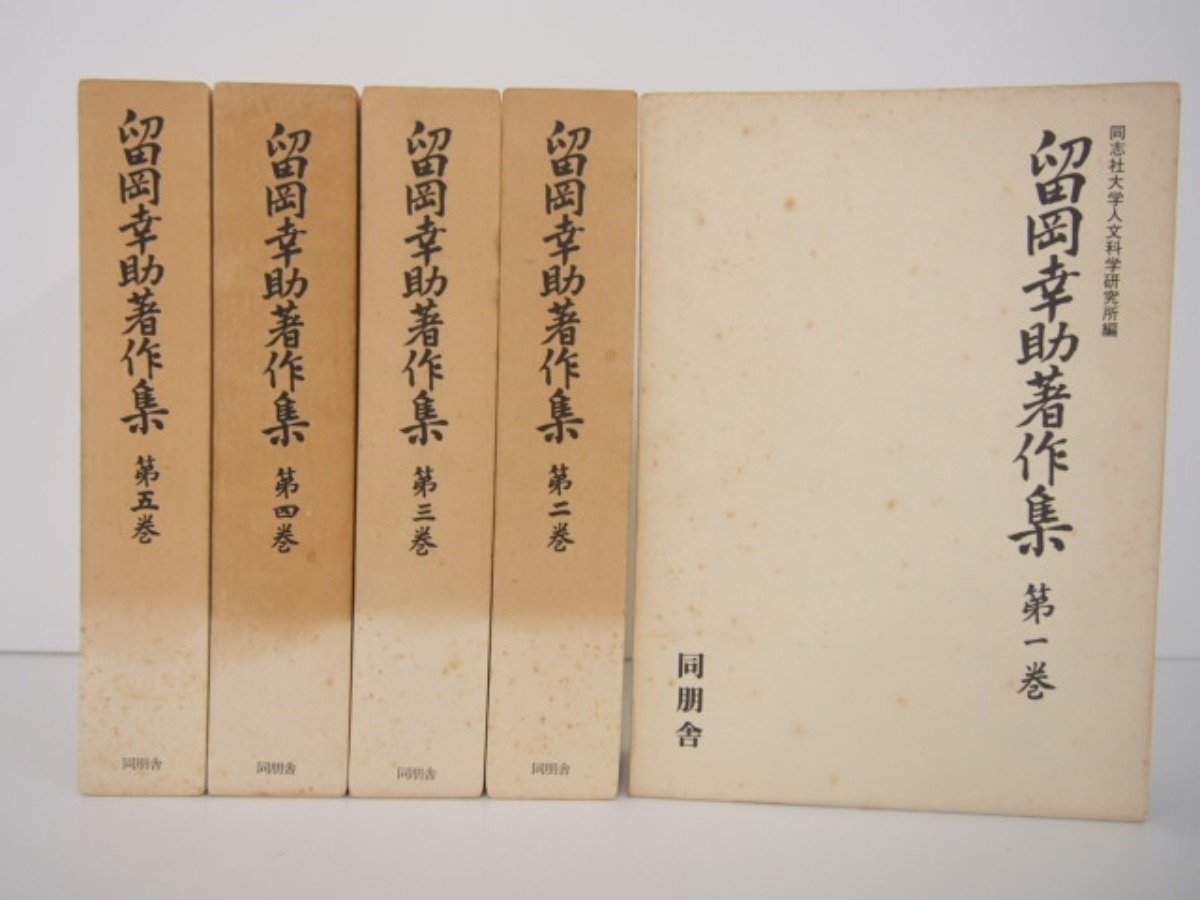 同志社大学人文科学研究所編
留岡幸助著作集 第一巻
同朋舎
留岡幸助著作集 第二巻
同朋舎
留岡幸助著作集 第三巻
同朋舎
留岡幸助著作集 第四巻
同朋舎
留岡幸助著作集 第五巻
同朋舎